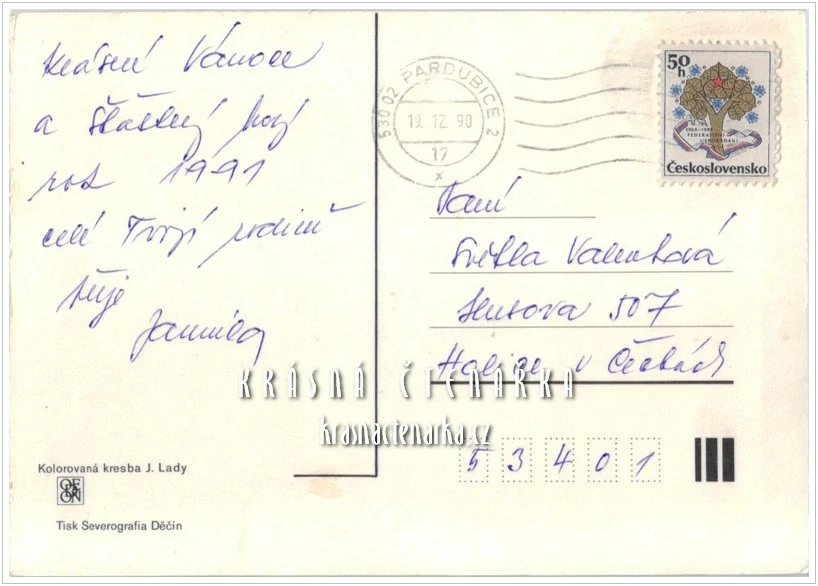 Krásné Vánoce
a šťastný nový
rok 1991
celé Tvojí rodině
přeje
Jarmila
Kolorovaná kresba J. Lady
ODEON
Tisk Severografia Děčín
530 02 PARDUBICE 2
19.12.90
17
x
50
h
1968-1988
FEDERATIVNÍ
USPOŘÁDÁNÍ
Československo
Paní
Světla Valentová
Husova 507
Holice v Čechách
KRÁSNÁ ČTENÁŘKA
krasnactenarka.cz
53401